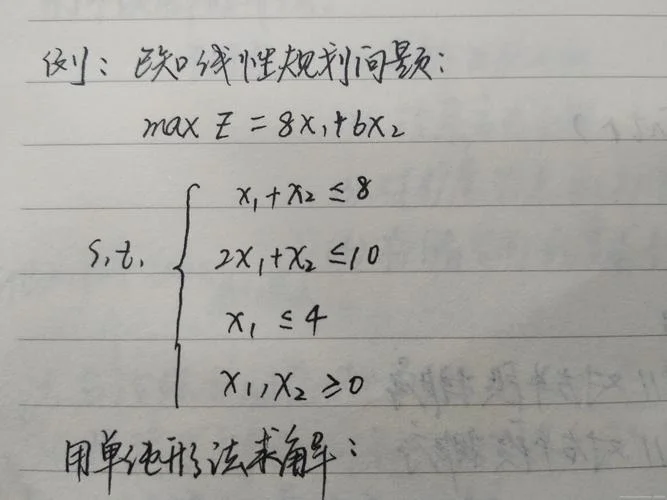 例：已知线性规划问题：
max Z = 8x₁+6x₂
s.t.
x₁+x₂ ≤ 8
2x₁+x₂ ≤ 10
x₁ ≤ 4
x₁,x₂ ≥ 0
用单纯形法求解：